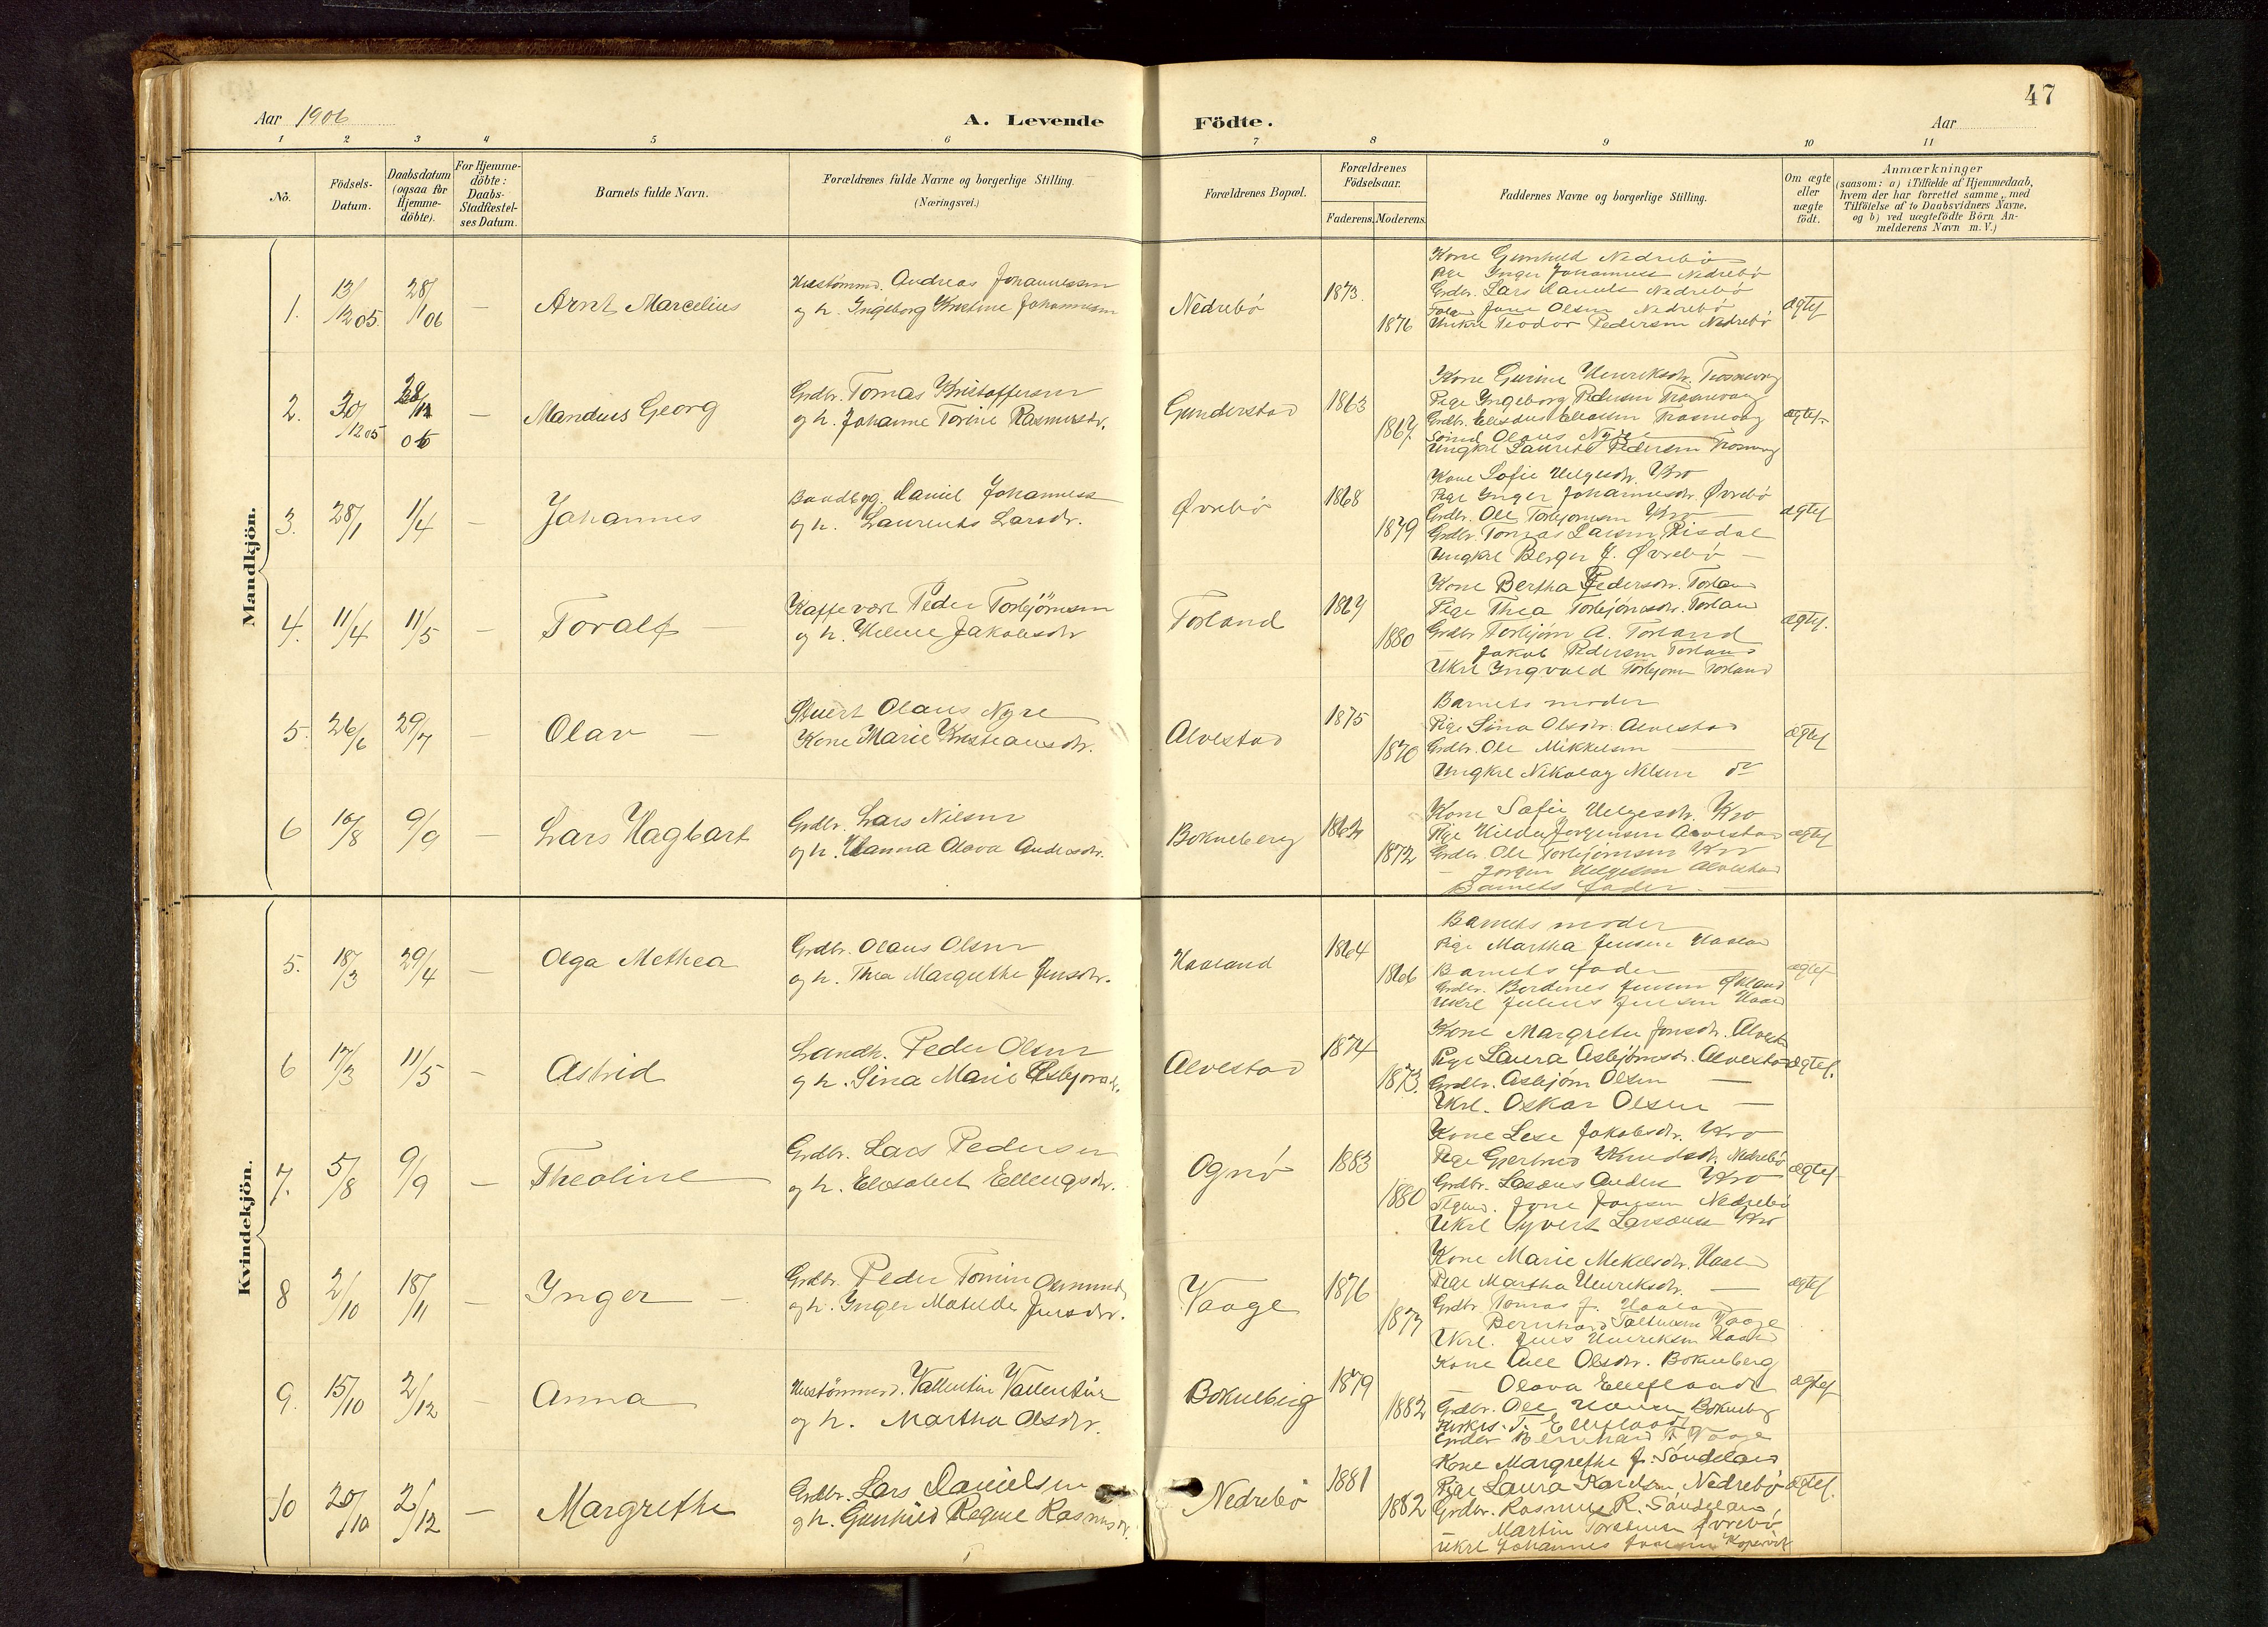 47
Aar 1906
A. Levende
Födte.
Aar
1 2 3 4 5 6 7 8 9 10 11
No.
Födsels-Datum.
Daabsdatum (ogsaa for Hjemme-döbte).
For Hjemme-döbte: Daabs-Stadfæstel-ses Datum.
Barnets fulde Navn.
Forældrenes fulde Navne og borgerlige Stilling. (Næringsvei.)
Forældrenes Bopæl.
Forældrenes Födselsaar.
Faderens. Moderens.
Faddernes Navne og borgerlige Stilling.
Om ægte eller uægte födt.
Anmærkninger
(saasom: a) i Tilfælde af Hjemmedaab,
hvem der har forrettet samme, med
Tilföielse af to Daabsvidners Navne,
og b) ved uægtefödte Börn An-
melderens Navn m. V.)
Mandkjön.
1. 13/12 05. 28/1 06 — Arnt Marcelius
Andreas Johannessen
og h. Ingeborg Kristine Johannessen
Nedrebö 1873. 1876
Kone Gunhild Nedrebö
Pige Inger Johannessen Nedrebö
Grdbr. Lars Daniels Nedrebö
Jone Olsen Nedrebö
Teodor Pedersen Nedrebö
ægtef
2. 30/12 05 — Mandius Georg
Grdbr. Tomas Kristoffersen
og h. Johanne Torine Rasmusdr.
Gunderstad 1863 1867
Kone Gurine Henriksdr.
Pige Ingeborg Pedersen
Grdbr. Elisæus
Olaus Nyre
Ungkrl Laurits Pedersen
ægtef.
3. 28/1 1/4 — Johannes
Daniel Johanness
og h. Laurentse Larsdr.
Øvrebö 1868 1879
Kone Sofie Helgesdr. Kro
Pige Inger Johannesdr. Øvrebö
Grdbr. Ole Torbjornsen Kro
Grdbr. Tomas Larsen Risdal
Ungkrl Berger J. Øvrebö —
ægtef
4. 11/4 11/5 — Toralf —
Kaffevært Peder Torbjörnsen
og h. Helene Jakobsdr
Torland 1869 1880
Kone Bertha Pedersdr. Torlan
Pige Thea Torbjörnsdr. Torlan
Grdbr Torbjörn A. Torland
— Jakob Pedersen Torland
Ukrl Ingvald Torbjorn Torland
ægtef.
5. 26/6 29/7 — Olav —
Olaus Nyre
Kone Marie Kristiansdr.
Alvestad 1875 1870
Barnets moder
Pige Sina Olsdr. Alvestad
Grdbr. Ole Mikkelsen —
Ungkrl Nikolay Nilsen do
ægtef
6 10/8 9/9 — Lars Hagbart
Grdbr. Lars Nilsen
og h. Hanna Olava Andersdr.
Bokneberg 1872
Kone Sofie Helgesdr. Kro
Pige Hilda Jorgensen Alvestad
Grdbr. Ole Torbjörnsen Kro
— Jorgen Helgesen Alvestad
Barnets fader. —
ægtef
Kvindekjön.
5. 18/3 29/4 — Olga Methea
Grdbr. Olaus Olsen
og h. Thea Margrethe Jensdr.
Haaland 1864 1866
Barnets moder
Pige Martha Jensen Haalan
Barnets fader —
Grdbr. Berdines Jensen
Ukrl Julius Jensen Haal
ægtef
6 17/3 11/5 — Astrid
Landh. Peder Olsen
og h. Sina Marie Asbjornsdr.
Alvestad 1874 1873.
Kone Margrethe Jonsdr. Alvest
Pige Laura Asbjörnsdr. Alvestad
Grdbr. Asbjörn Olsen —
Ukrl. Oskar Olsen —
ægtef.
7. 5/8 9/9 — Theoline
Grdbr. Lars Pedersen
og h. Elisabet Ellingsdr.
Ognö 1883 1880
Kone Lese Jakobsdr. Kro
Pige Gjertrud Knudsdr. Nedrebö
Grdbr. Lars Anders Kro
Jone Jonsen Nedrebö
Ukrl Syvert Larsen Kro
ægtef
8 2/10 18/11 — Inger —
Grdbr. Peder Tomin Osmunds
og h. Inger Matilde Jensdr.
Vaage 1876 1877
Kone Marie Mekelsdr. Haaln
Pige Martha Henriksdr. —
Grdbr. Tomas J. Haaland
Bernhard Vaage
Ukrl. Jens Henriksen Haaln
ægtef
9. 15/10 2/12 — Anna
Vallentin Vallentin
og h. Martha Olsdr.
Bokneberg 1879 1882
Kone Olsdr. Bokneberg
— Olava
Grdbr. Ole Hansen Bokneberg
Grdbr Bernhard T. Vaage
ægtef
10 20/10 2/12 — Margrethe
Grdbr. Lars Danielsen
og h. Gunhild Regine Rasmusdr.
Nedrebö 1881 1882
Kone Margrethe J. Söndelan
Pige Laura Karlsen, Nedrebö
Grdbr. Rasmus R. Söndelan
Martin Torstensen Övrebö
Ukrl Johannes Kopervik
ægtef.